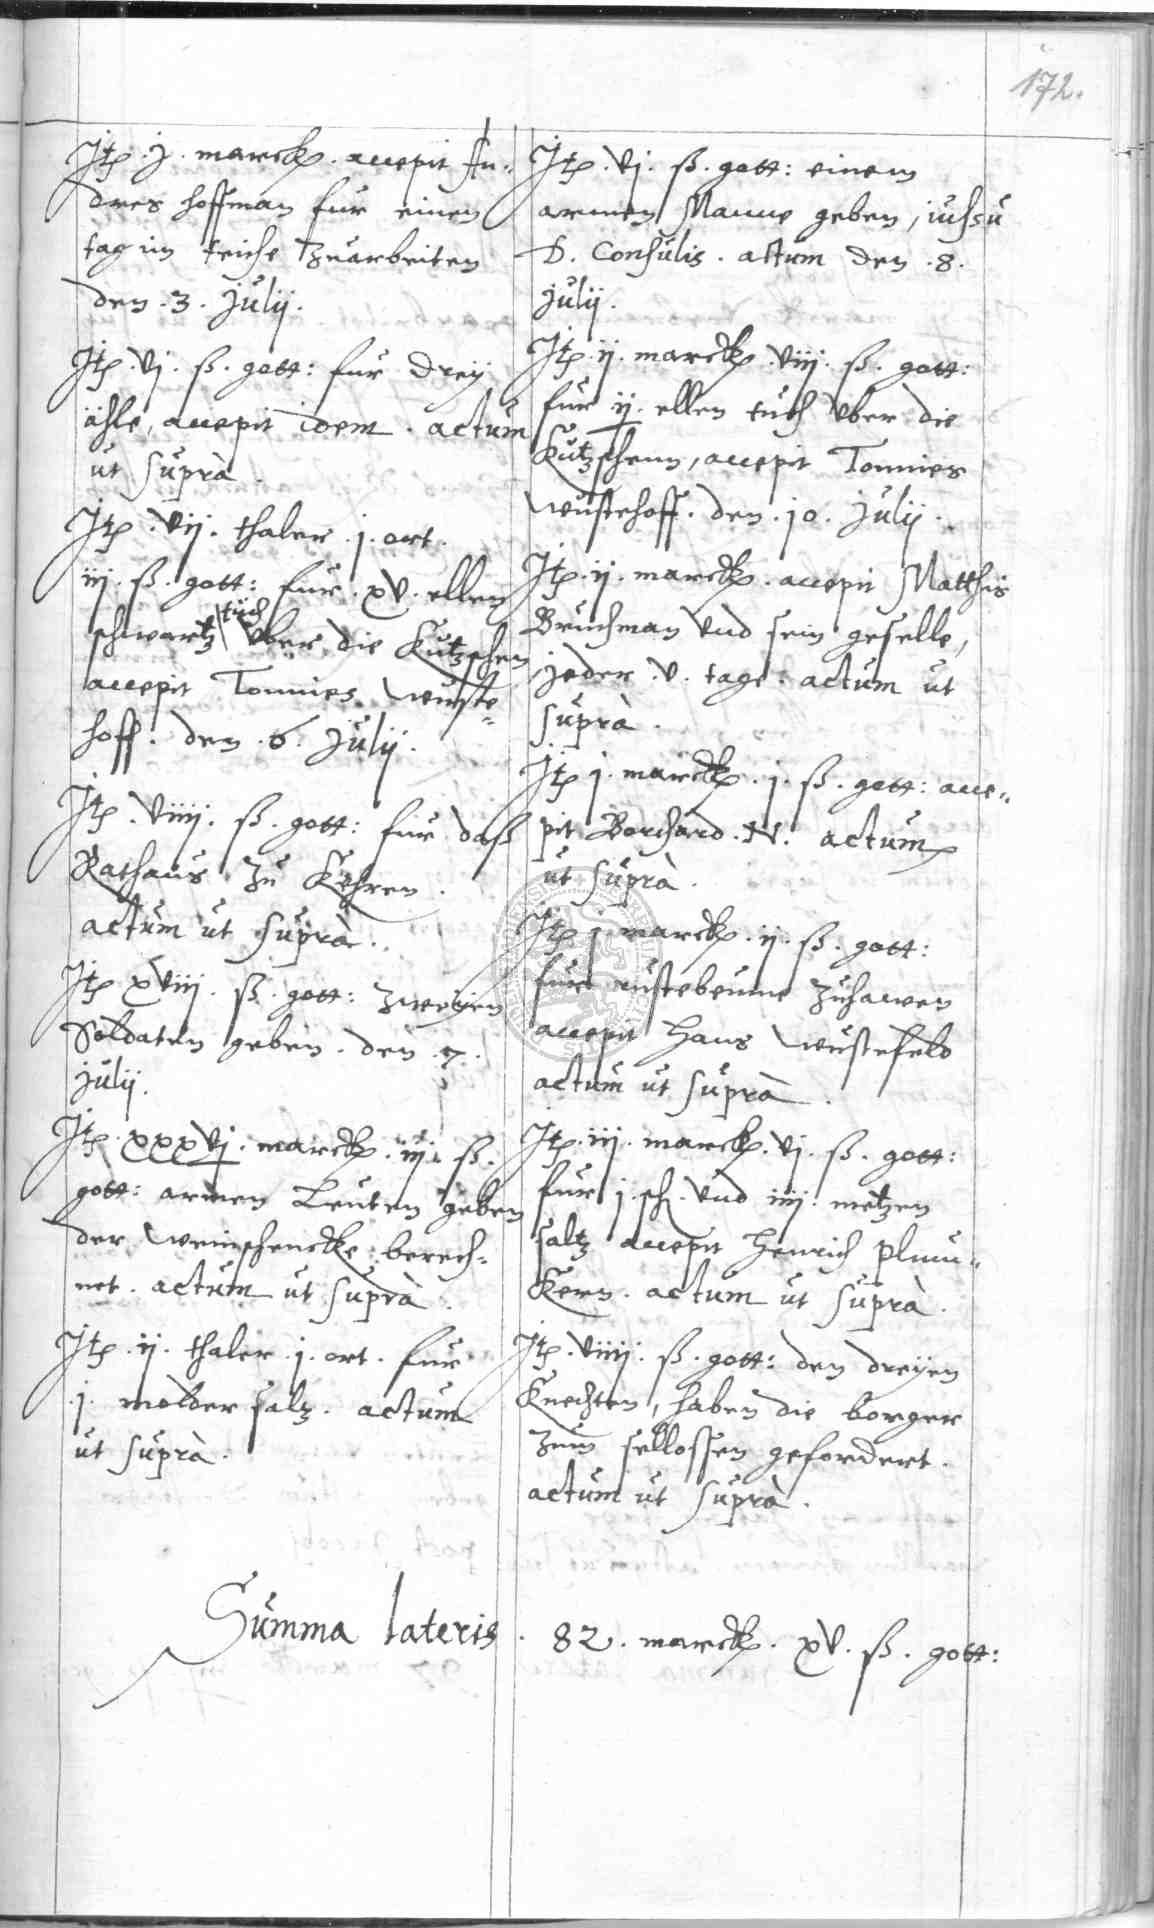 172.
Itp. j. marck. accepit An-
dres Hoffman fur einen
tag im teiche zuarbeiten
den .3. Julij.
Itp. vj. ß. gott: fur drey
ähle, accepit idem. actum
ut suprà.
Itp. vij. thaler .j. ort.
iij. ß. gott: fur .xv. ellen
schwartz tuch vber die Kutzschen
accepit Tonnies Wuste-
hoff. den .6. Julij.
Itp. viiij. ß. gott: fur daß
Rathaus zu Kehren.
actum ut suprà.
Itp xviij. ß. gott: zweyen
Soldaten geben. den .7.
Julij.
Itp. xxxvj. marck. iij. ß.
gott: armen Leuten geben
der weinschencke berech-
net. actum ut suprà.
Itp. ij. thaler .j. ort. fur
.j. molder saltz. actum
ut suprà.
Itp. vj. ß. gott: einem
armen Manne geben, iussu
D. Consulis. actum den .8.
Julij.
Itp. ij. marck. viij. ß. gott:
fur ij. ellen tuch vber die
Kutzschenn, accepit Tonnies
Wustehoff. den .10. Julij.
Itp. ij. marck. accepit Matthis
Bruchman vnd sein geselle,
jeder .v. tage. actum ut
suprà.
Itp j. marck. j. ß. gott: acce-
pit Borchard .N. actum
ut suprà.
Itp j. marck. ij. ß. gott:
fur rustebeume zuhawen
accepit Hans Wustefeld
actum ut suprà.
Itp. iij. marck. vj. ß. gott:
fur j. sch. vnd iiij. metzen
saltz accepit Henrich
Kern. actum ut suprà.
Itp. viiij. ß. gott: den dreyen
Knechten, haben die borger
zum gefordert.
actum ut suprà.
Summa lateris. 82. marck. xv. ß. gott: